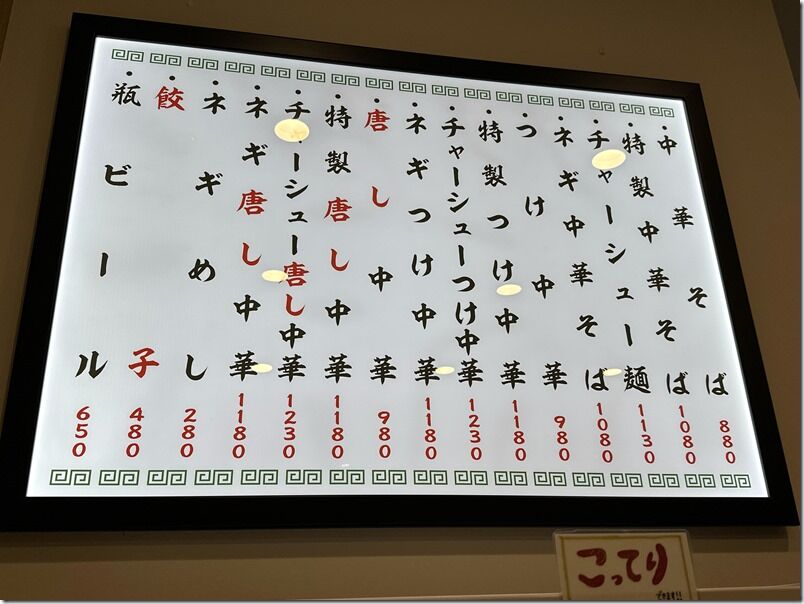 ・中華そば 880
・特製中華そば 1080
・チャーシュー麺 1130
・ネギ中華そば 1080
・つけ中華 980
・特製つけ中華 1180
・チャーシューつけ中華 1230
・ネギつけ中華 1180
・唐し中華 980
・特製唐し中華 1180
・チャーシュー唐し中華 1230
・ネギ唐し中華 1180
・ネギめし 280
・餃子 480
・瓶ビール 650
こってり
できます!!